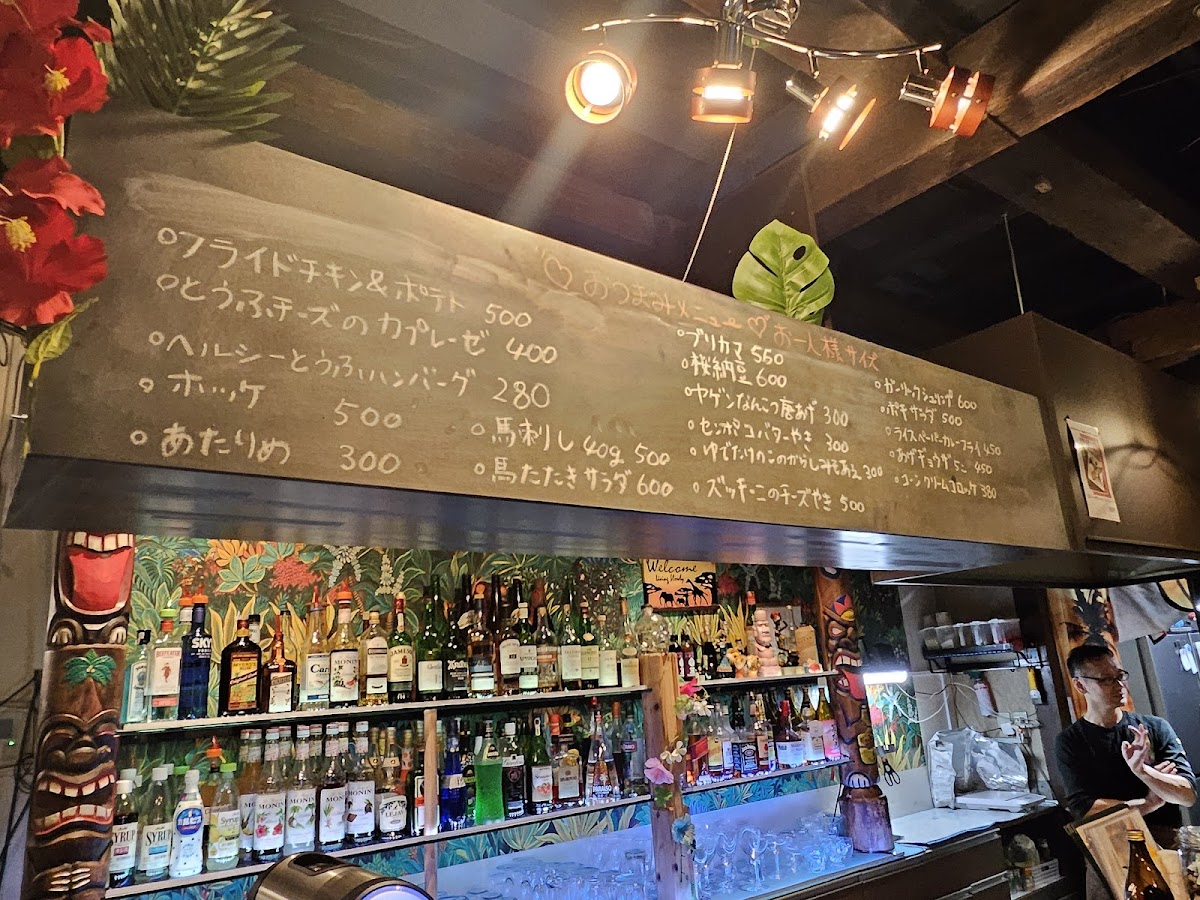 ♡おつまみメニュー♡お一人様サイズ
○フライドチキン&ポテト 500
○とうふチーズのカプレーゼ 400
○ヘルシーとうふハンバーグ 280
○ホッケ 500
○あたりめ 300
○馬刺し40g 500
○馬たたきサラダ600
○ブリカマ 550
○桜納豆600
○ヤゲンなんこつ唐あげ 300
○センポコバターやき 300
○ゆでたけのこのからしみそあえ 300
○ズッキーニのチーズやき 500
○ガーリックシュリンプ 600
○ポキサラダ 500
○ライスペーパーカレーフライ 450
○あげギョウザ5こ 450
○コーンクリームコロッケ 380
Welcome
BEEFEATER
SKYY
MONIN
JAMESON
MONIN
MONIN
MONIN
MONIN
SYRUP
SYRUP
Syrup